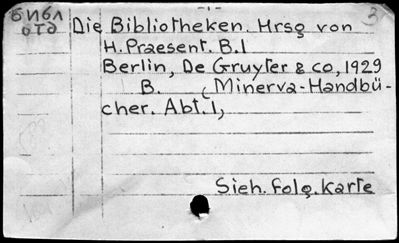 3
Die Bibliotheken. Hrsg von
H. Praesent. B.1
Berlin, De Gruyter & co, 1929
B. (Minerva-Handbü-
cher. Abt. 1,
Sieh. folg. Karte